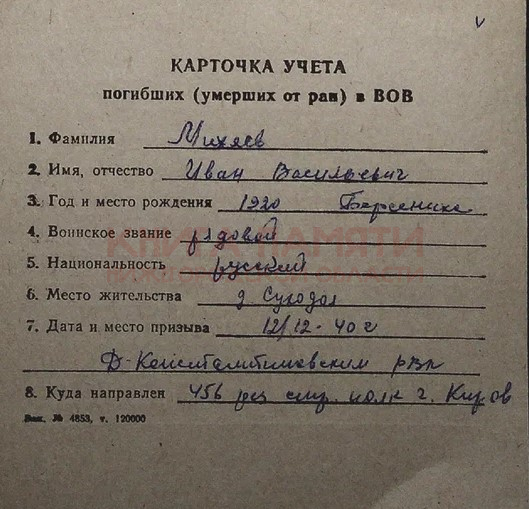 V
КАРТОЧКА УЧЕТА
погибших (умерших от ран) в ВОВ
1. Фамилия Михяев
2. Имя, отчество Иван Васильевич
3. Год и место рождения 1920
4. Воинское звание рядовой
КНИГА ПАМЯТИ
5. Национальность русский
6. Место жительства д. Суходол
7. Дата и место призыва 12/12-40 г
Д-Константиновским рвк
8. Куда направлен 456 рез стр. полк г. Киров
Зак. № 4853, т. 120000